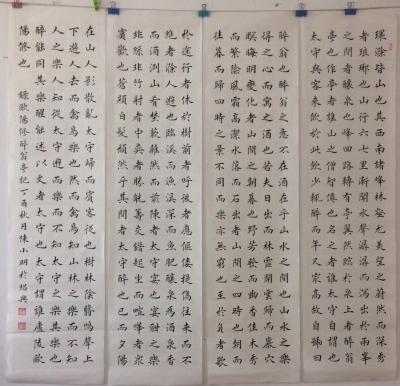 環滁皆山也其西南諸峰林壑尤美望之蔚然而深秀
者琅琊也山行六七里漸聞水聲潺潺而瀉出於兩峯
之間者釀泉也峰回路轉有亭翼然臨於泉上者醉翁
亭也作亭者誰山之僧智僊也名之者誰太守自謂也
太守與客來飲於此飲少輒醉而年又最高故自號曰
醉翁也醉翁之意不在酒在乎山水之間也山水之樂
得之心而寓之酒也若夫日出而林霏開雲歸而巖穴
暝晦明變化者山間之朝暮也野芳發而幽香佳木秀
而繁陰風霜高潔水落而石出者山間之四時也朝而
往暮而歸四時之景不同而樂亦無窮也至於負者歌
於途行者休於樹前者呼後者應傴僂提攜往來而不
絕者滁人遊也臨溪而漁溪深而魚肥釀泉為酒泉香
而酒洌山肴野蔌雜然而前陳者太守宴也宴酣之樂
非絲非竹射者中弈者勝觥籌交錯起坐而諠譁者衆
賓歡也蒼顏白髮頹然乎其間者太守醉也已而夕陽
在山人影散亂太守歸而賓客從也樹林陰翳鳴聲上
下遊人去而禽鳥樂也然而禽鳥知山林之樂而不知
人之樂人知從太守遊而樂而不知太守之樂其樂也
醉能同其樂醒能述以文者太守也太守謂誰廬陵歐
陽修也 錄歐陽修醉翁亭記丁酉秋月陳小明於紹興